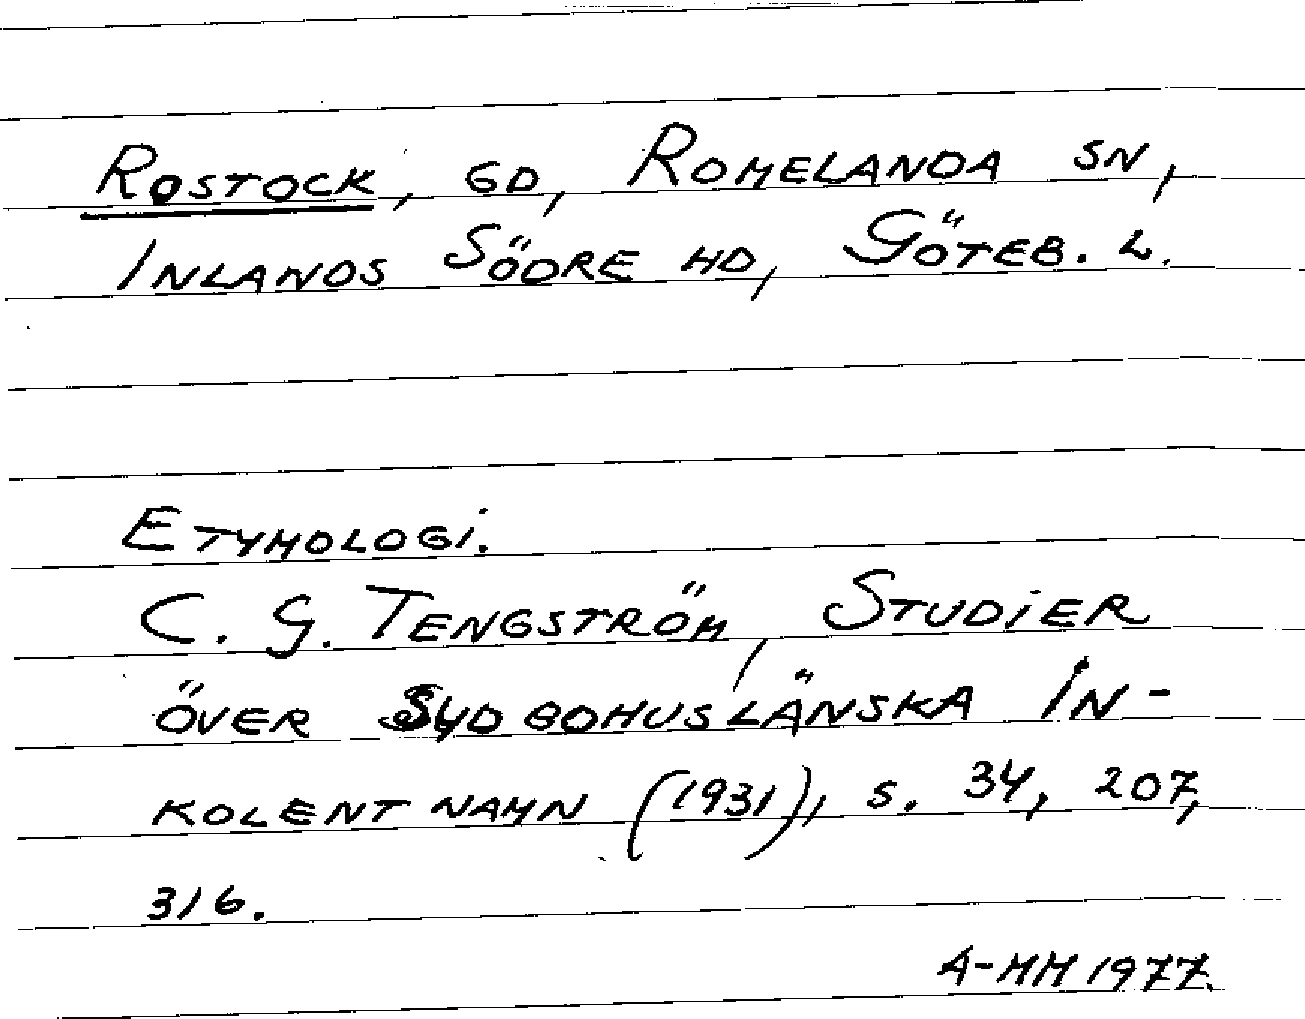 ROSTOCK, GD, ROMELANDA SN,
INLANDS SÖDRE HD, GÖTEB. L.
ETYMOLOGI.
C. G. TENGSTRÖM, STUDIER
ÖVER SYDBOHUSLÄNSKA IN-
KOLENTNAMN (1931), S. 34, 207,
316.
A-MM 1977.